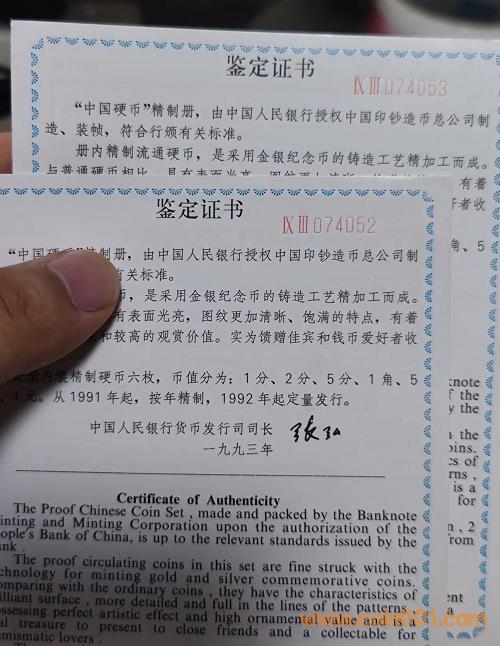 鉴定证书
ⅨⅢ074053
“中国硬币”精制册，由中国人民银行授权中国印钞造币总公司制
造、装帧，符合行颁有关标准。
册内精制流通硬币，是采用金银纪念币的铸造工艺精加工而成。
与普通硬币相比，具有表面光亮
有着
者收
角、5
鉴定证书
ⅨⅢ074052
“中国硬币”精制册，由中国人民银行授权中国印钞造币总公司制
有关标准。
币，是采用金银纪念币的铸造工艺精加工而成。
有表面光亮，图纹更加清晰、饱满的特点，有着
和较高的观赏价值。实为馈赠佳宾和钱币爱好者收
册内装精制硬币六枚，币值分为：1分、2分、5分、1角、5
、1元。从1991年起，按年精制，1992年起定量发行。
中国人民银行货币发行司司长
一九九三年
Certificate of Authenticity
The Proof Chinese Coin Set , made and packed by the Banknote
inting and Minting Corporation upon the authorization of the
ople's Bank of China, is up to the relevant standards issued by the
nk .
The proof circulating coins in this set are fine struck with the
chnology for minting gold and silver commemorative coins.
omparing with the ordinary coins , they have the characteristics of
illiant surface , more detailed and full in the lines of the patterns ,
ossessing perfect artistic effect and high ornamental value and
al treasure to present to close friends and a collectable for
umismatic lovers .
knote
f the
y the
the
oins.
cs of
rns ,
is a
for
, 2
rom
ent